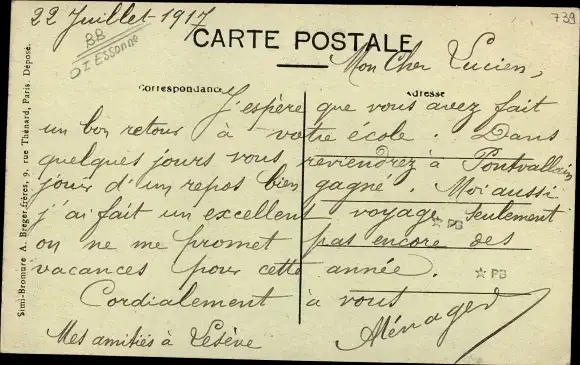 22 Juillet 1917
739
BB
DI ESSonne
CARTE POSTALE
Mon Cher Lucien,
Correspondance
Adresse
J'espère que vous avez fait
un bon retour à votre école. Dans
quelques jours vous reviendrez à Pontvallain
jouir d'un repos bien gagné. Moi aussi
j'ai fait un excellent voyage. Seulement
on ne me promet pas encore des
vacances pour cette année.
Cordialement à vous
Ménager
Mes amitiés à Lesève
☆ PB
☆ PB
Simi-Bromure A. Breger frères, 9, rue Thénard, Paris. Déposé.